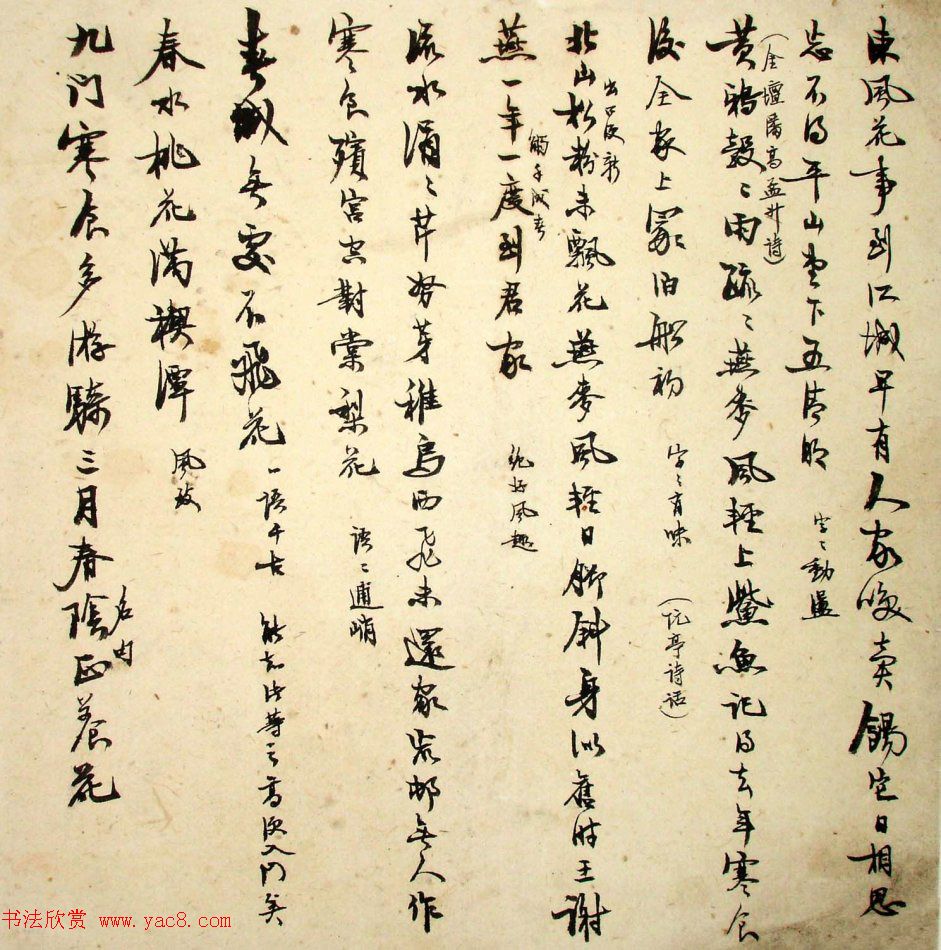 東風花事到江城早有人家喚賣餳它日相思
忘不得平山堂下五清明 字々動盪
(金壇潘高孟升詩)
黄鴉穀々雨疏々燕麥風輕上鮆魚記得去年寒食
後全家上冢泊船初 字々有味 (阮亭詩話)
北山松粉未飄花燕麥風輕日脚斜身似舊時王謝
出口便新
觸手成春
燕一年一度到君家 絶好風趣
流水涓々芹努芽稚烏西飛未還家荒邨無人作
寒食殯宮空對棠梨花 語々逋峭
春城無處不飛花 一語千古 能知此等之高便入門矣
春水桃花滿禊潭 風致
九門寒食多游騎三月春陰正養花
名句
书法欣赏 www.yac8.com